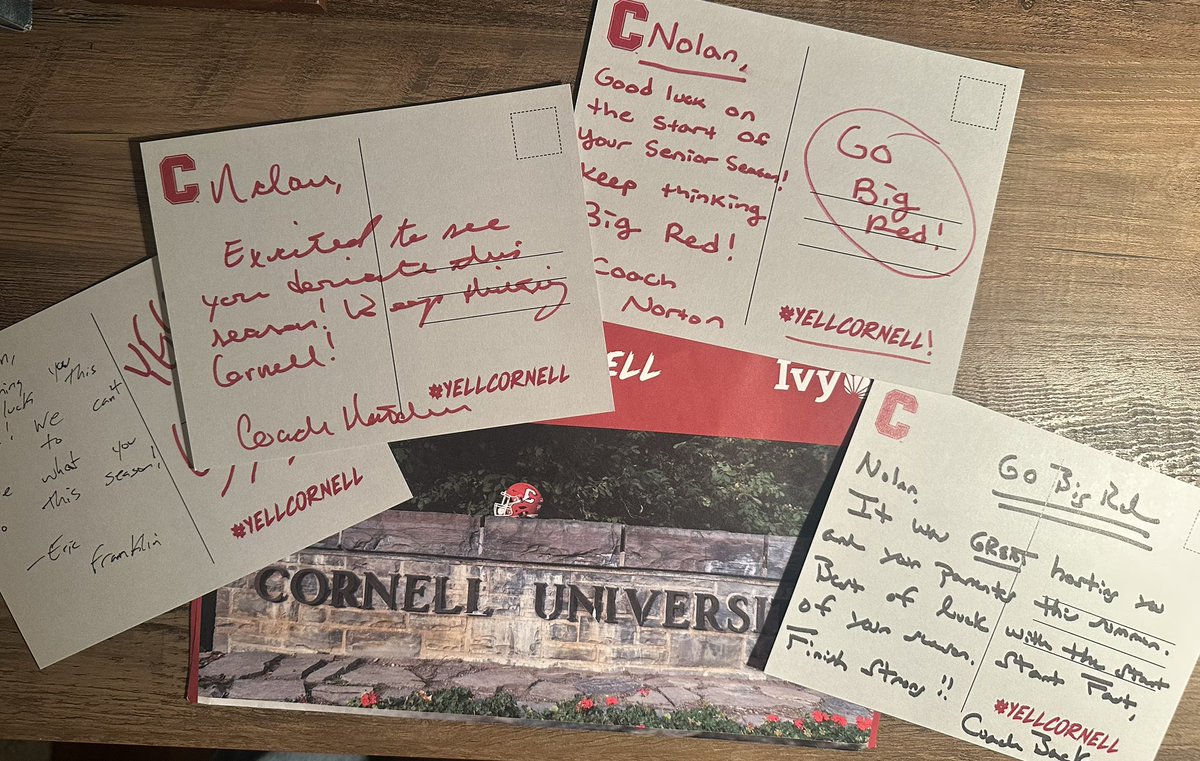 C Nolan,
Good luck on
the start of
your Senior Season!
Keep thinking
Big Red!
Coach
Norton
Go
Big
Red!
#YELLCORNELL!
C Nolan,
Excited to see
you dominate this
season! Keep thinking
Cornell!
Coach
#YELLCORNELL
you
luck this
! We can't
to
what you
this season!
-Eric
Franklin
#YELLCORNELL
ELL
Ivy
CORNELL UNIVERSI
C
Go Big Red
Nolan,
It was GREAT hosting you
and your parents this summer.
Best of luck with the start
of your season. Start Fast,
Finish Strong!!
Coach Back
#YELLCORNELL